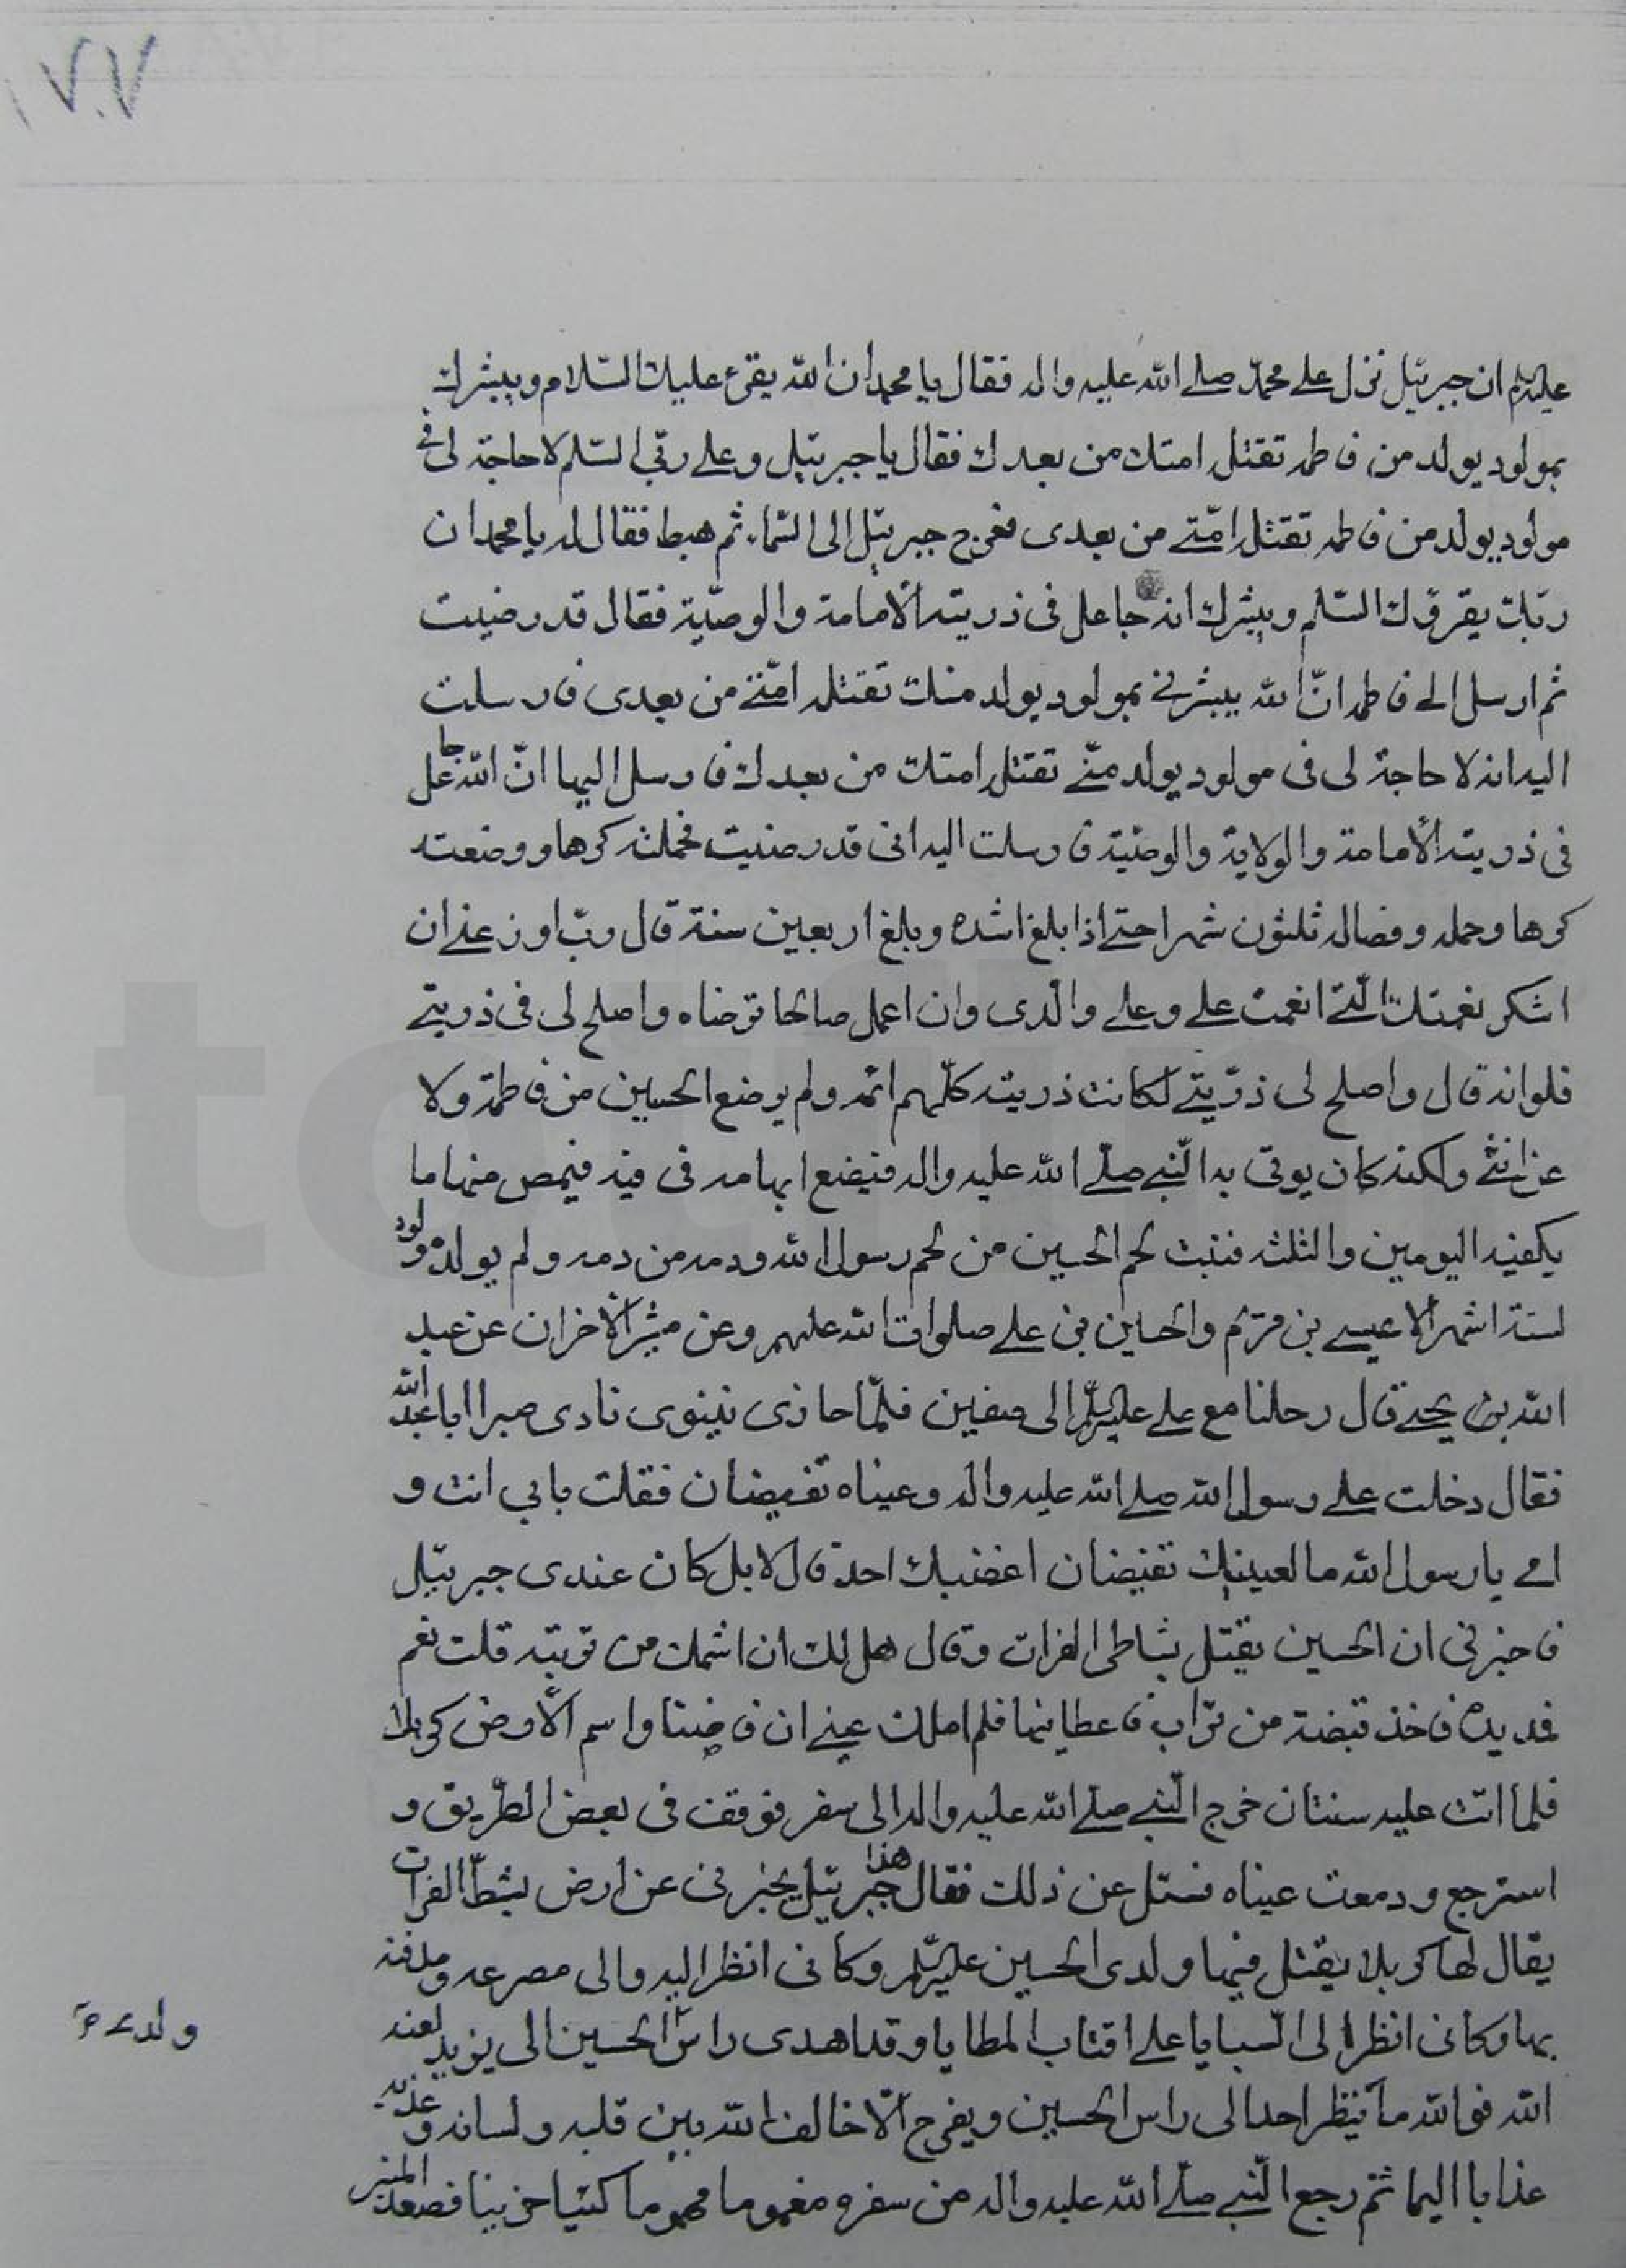 ١٧٠٧
عليه السلم ان جبرئيل نزل على محمد صلى الله عليه واله فقال يا محمد ان الله يقرء عليك السلام ويبشرك
بمولود يولد من فاطمه تقتله امتك من بعدك فقال يا جبرئيل وعلى ربى السلم لا حاجة لى فى
مولود يولد من فاطمه تقتله امتى من بعدى فعرج جبرئيل الى السماء ثم هبط فقال له يا محمد ان
ربك يقرؤك السلم ويبشرك انه جاعل فى ذريته الأمامة والوصية فقال قد رضيت
ثم ارسل الى فاطمه انّ الله يبشرنى بمولود يولد منك تقتله امتى من بعدى فارسلت
اليه انه لا حاجة لى فى مولود يولد منى تقتله امتك من بعدك فارسل اليها انّ الله جاعل
فى ذريته الأمامة والولاية والوصية فارسلت اليه انى قد رضيت فحملته كرها ووضعته
كرها وحمله وفصاله ثلثون شهرا حتى اذا بلغ اشده وبلغ اربعين سنة قال رب اوزعنى ان
اشكر نعمتك الّتى انعمت على وعلى والدى وان اعمل صالحا ترضاه واصلح لى فى ذريتى
فلو انه قال واصلح لى ذرّيتى لكانت ذريته كلّهم ائمه ولم يرضع الحسين من فاطمة ولا
من انثى ولكنه كان يوتى به النّبى صلّى الله عليه واله فيضع ابهامه فى فيه فيمص منها ما
يكفيه اليومين والثلثه فنبت لحم الحسين من لحم رسول الله ودمه من دمه ولم يولد مولود
لستة اشهر الا عيسى بن مريم والحسين بن على صلوات الله عليهم وعن مثير الأحزان عن عبد
الله بن يحيى قال رحلنا مع على عليه السلم الى صفين فلمّا حاذى نينوى نادى صبرا ابا عبد الله
فقال دخلت على رسول الله صلى الله عليه واله وعيناه تفيضان فقلت بابى انت و
امى يا رسول الله ما لعينيك تفيضان اغضبك احد قال لا بل كان عندى جبرئيل
فاخبرنى ان الحسين يقتل بشاطى الفرات وقال هل لك ان اشمك من تربته قلت نعم
فمد يده فاخذ قبضة من تراب فاعطانيها فلم املك عينى ان فاضتا واسم الأرض كربلا
فلما اتت عليه سنتان خرج النّبى صلى الله عليه واله الى سفر فوقف فى بعض الطّريق و
استرجع ودمعت عيناه فسئل عن ذلك فقال هذا جبرئيل يخبرنى عن ارض بشطّ الفرات
يقال لها كربلا يقتل فيها ولدى الحسين عليه السلم وكانى انظر اليه والى مصرعه ومدفنه
بها وكانى انظر الى السبايا على اقتاب المطايا وقد اهدى راس الحسين الى يزيد لعنه
ولدى
الله فوالله ما ينظر احد الى راس الحسين ويفرح الّا خالف الله بين قلبه ولسانه وعذبه
عذابا اليما ثم رجع النّبى صلّى الله عليه واله من سفره مغموما مهموما كئيبا حزينا فصعد المنبر